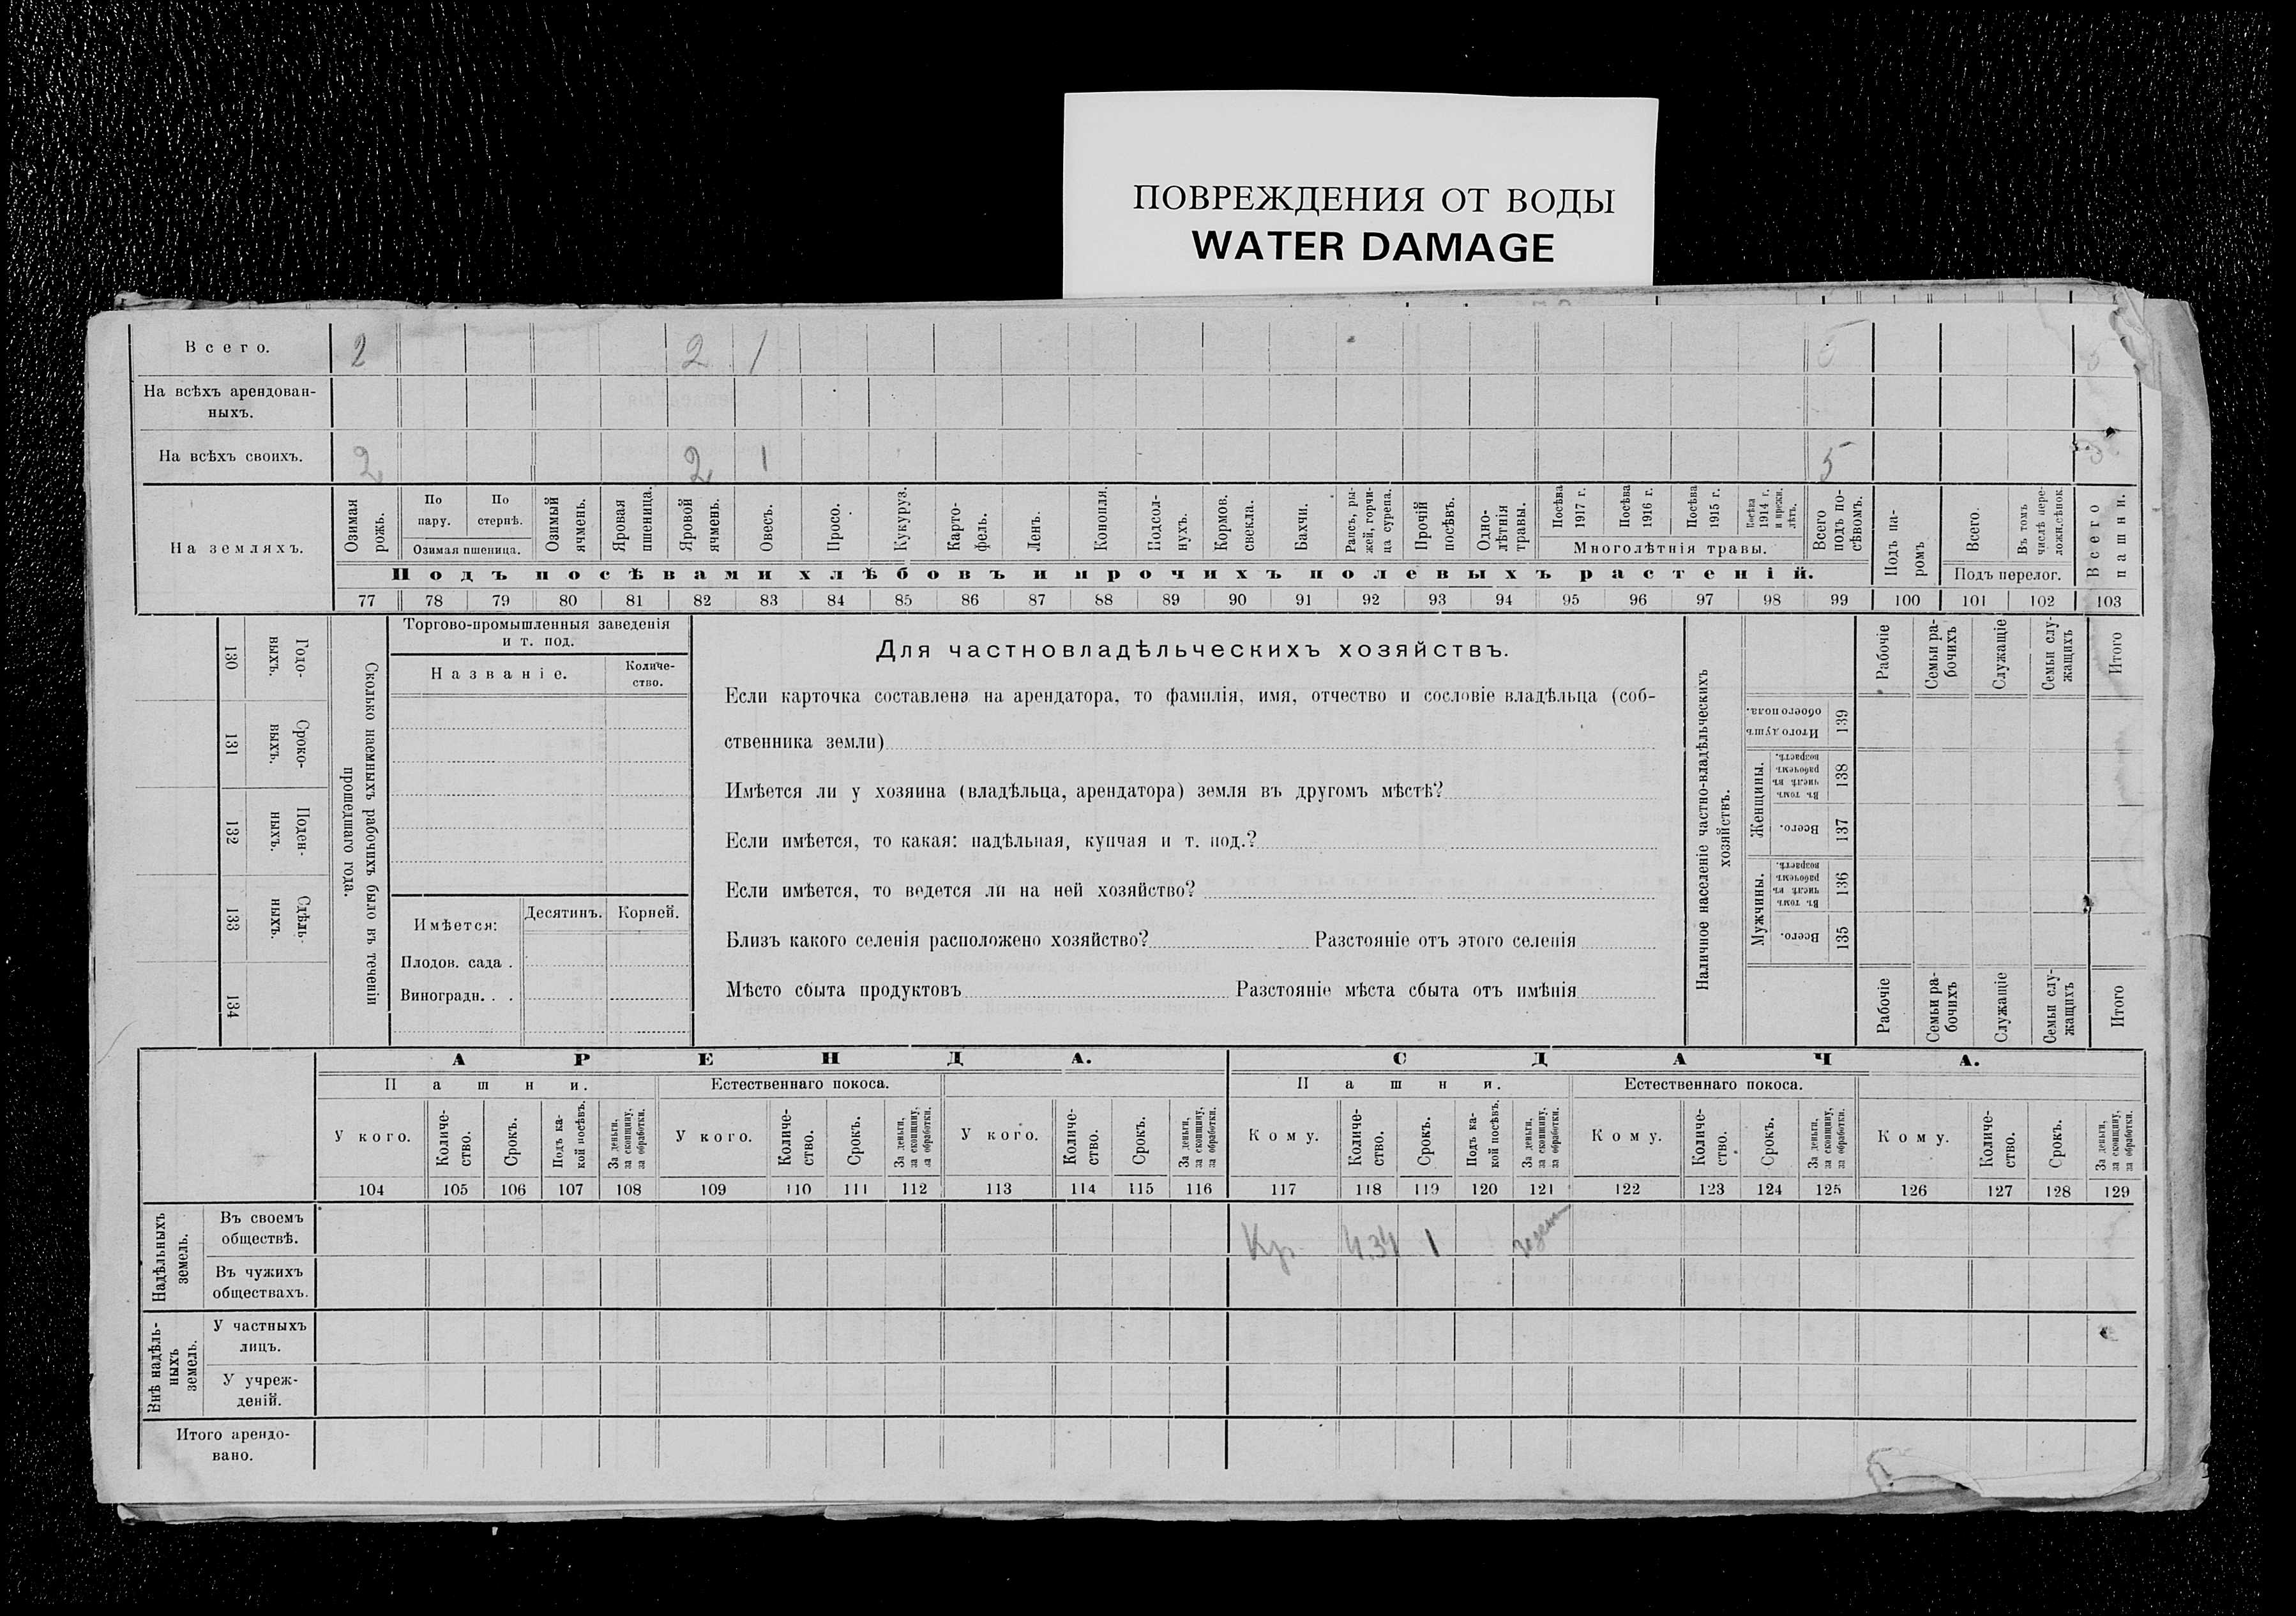 ПОВРЕЖДЕНИЯ ОТ ВОДЫ
WATER DAMAGE
Всего. 2 2 1 5 5
На всѣхъ арендован-
ныхъ.
На всѣхъ своихъ. 2 2 1 5
На земляхъ.
Озимая рожь.
По пару.
По стернѣ.
Озимая пшеница.
Озимый ячмень.
Яровая пшеница.
Яровой ячмень.
Овесъ.
Просо.
Кукуруз.
Карто-
фель.
Ленъ.
Конопля.
Подсол-
нухъ.
Кормов. свекла.
Бахчи.
Рапсъ, ры-
жей, горчи-
ца сурепа.
Прочій посѣвъ.
Одно-
лѣтнія травы.
Посѣва 1917 г.
Посѣва 1916 г.
Посѣва 1915 г.
Посѣва 1914 г. и прежн. лѣтъ.
Многолѣтнія травы.
Всего подъ по-
сѣвомъ.
Подъ па-
ромъ
Всего.
Въ томъ числѣ пере-
ложн.сѣнок.
Подъ перелог.
Всего пашни.
Подъ посѣвами хлѣбовъ и прочихъ полевыхъ растеній.
77 78 79 80 81 82 83 84 85 86 87 88 89 90 91 92 93 94 95 96 97 98 99 100 101 102 103
Годо-
выхъ.
130
Сроко-
ныхъ.
131
Поден-
ныхъ.
132
Сдѣль-
ныхъ.
133
134
Сколько наемныхъ рабочихъ было въ теченіи
прошедшаго года.
Торгово-промышленныя заведенія
и т. под.
Названіе.
Количе-
ство.
Имѣется:
Десятинъ. Корней.
Плодов. сада .
Виноградн. . .
Для частновладѣльческихъ хозяйствъ.
Если карточка составлена на арендатора, то фамилія, имя, отчество и сословіе владѣльца (соб-
ственника земли)
Имѣется ли у хозяина (владѣльца, арендатора) земля въ другомъ мѣстѣ?
Если имѣется, то какая: надѣльная, купчая и т. под.?
Если имѣется, то ведется ли на ней хозяйство?
Близъ какого селенія расположено хозяйство? Разстояніе отъ этого селенія
Мѣсто сбыта продуктовъ Разстояніе мѣста сбыта отъ имѣнія
Наличное населеніе частно-владѣльческихъ
хозяйствъ.
Рабочіе
Семьи ра-
бочихъ
Служащіе
Семьи слу-
жащихъ
Итого
Итого душъ
обоего пола.
139
Женщины.
Въ томъ числѣ въ рабочемъ возрастѣ.
138
Всего.
137
Мужчины.
Въ томъ числѣ въ рабочемъ возрастѣ.
136
Всего.
135
Рабочіе
Семьи ра-
бочихъ
Служащіе
Семьи слу-
жащихъ
Итого
АРЕНДА. СДАЧА.
Пашни. Естественнаго покоса. Пашни. Естественнаго покоса.
У кого.
Количе-
ство.
Срокъ.
Подъ ка-
кой посѣвъ.
За деньги, за скопщину, за обработки.
У кого.
Количе-
ство.
Срокъ.
За деньги, за скопщину, за обработки.
У кого.
Количе-
ство.
Срокъ.
За деньги, за скопщину, за обработки.
Кому.
Количе-
ство.
Срокъ.
Подъ ка-
кой посѣвъ.
За деньги, за скопщину, за обработки.
Кому.
Количе-
ство.
Срокъ.
За деньги, за скопщину, за обработки.
Кому.
Количе-
ство.
Срокъ.
За деньги, за скопщину, за обработки.
104 105 106 107 108 109 110 111 112 113 114 115 116 117 118 119 120 121 122 123 124 125 126 127 128 129
Надѣльныхъ
земель.
Въ своемъ
обществѣ.
Кр. 4.34 1
Въ чужихъ
обществахъ.
Внѣ надѣль-
ныхъ
земель.
У частныхъ
лицъ.
У учреж-
деній.
Итого арендо-
вано.